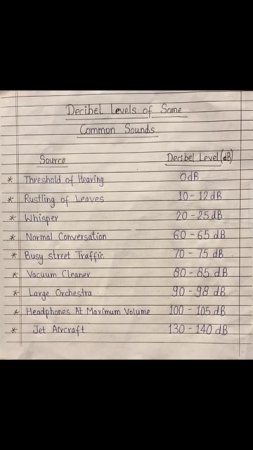 Decibel Levels of Some
Common Sounds
Source Decibel Level (dB)
* Threshold of Hearing 0dB
* Rustling of Leaves 10 - 12 dB
* Whisper 20 - 25 dB
* Normal Conversation 60 - 65 dB
* Busy street Traffic 70 - 75 dB
* Vacuum Cleaner 80 - 85 dB
* Large Orchestra 90 - 98 dB
* Headphones At Maximum Volume 100 - 105 dB
* Jet Aircraft 130 - 140 dB